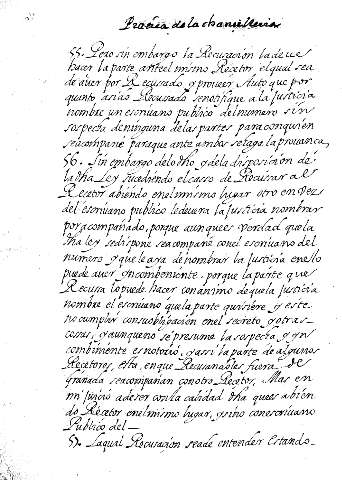 Practica de la chancilleria
55. Pero sin embargo la Recusacion la deve
hacer la parte ante el mismo Recetor el qual sea
de aver por Recusado, y proveer Auto que por
quanto asido Recusado se notifique a la Justicia
nombre un escrivano publico del numero sin
sospecha de ninguna de las partes para con quien
se acompañe para que ante ambos se haga la provanca,
56. Sin embargo de lo dho, y de la disposicion de
la dha Ley sucediendo el caso de Recusar al
Recetor abiendo en el mismo lugar otro en vez
del escrivano publico le devera la Justicia nombrar
por acompañado, porque aunque es verdad que la
dha ley se dispone se acompañe con el escrivano del
numero y que le aya de nombrar la Justicia en ello
puede aver ynconbeniente, porque la parte que
Recusa lo puede hacer con animo de que la Justicia
nombre el escrivano que la parte quisiere, y este
no cumplir con su obligacion en el secreto y otras
cosas, y aunque no se presuma la sospecha, y yn
conbiniente es notorio, y assi la parte de algunos
Recetores, esta, en que Recusandoles fuera de
Granada se acompañan con otro Recetor, Mas en
mi juicio a de ser con la calidad dha que es abien
do Recetor en el mismo lugar, y sino con escrivano
Publico del —
57. La qual Recusacion se a de entender Estando-